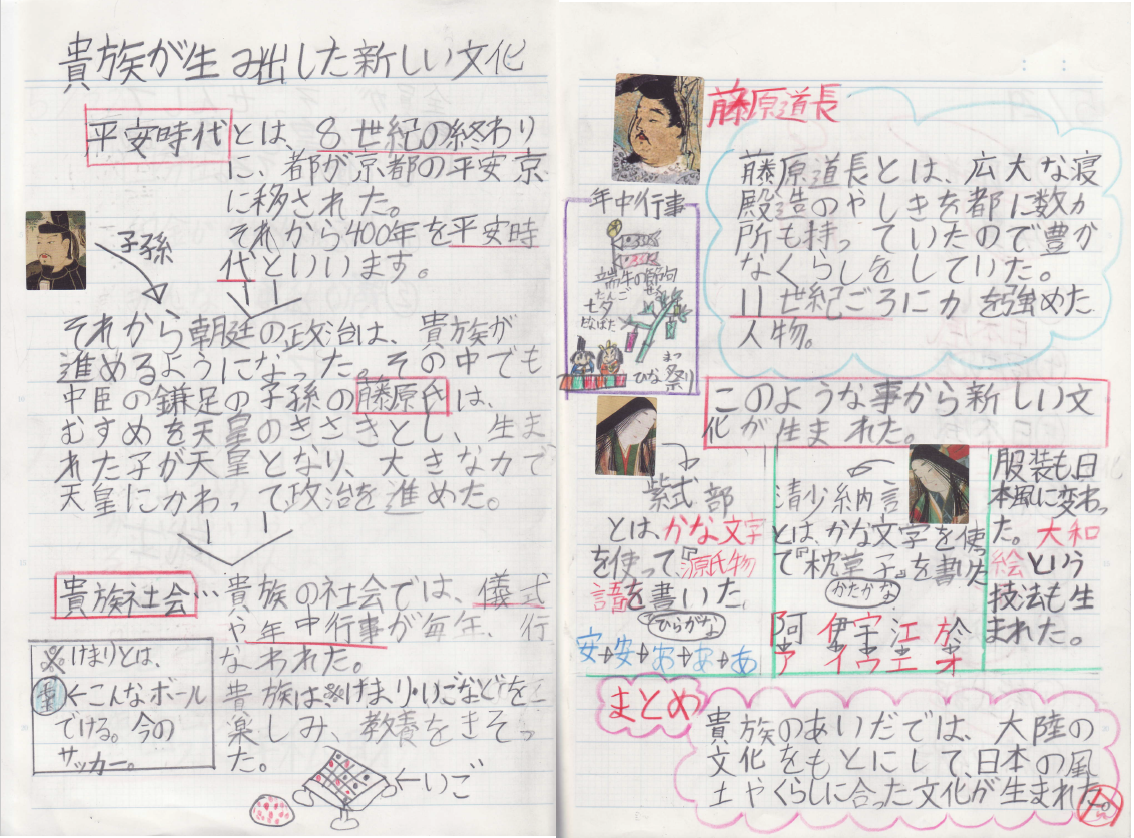 貴族が生み出した新しい文化
平安時代とは、8世紀の終わり
に、都が京都の平安京
に移された。
それから400年を平安時
代といいます。
子孫
それから朝廷の政治は、貴族が
進めるようになった。その中でも
中臣の鎌足の子孫の藤原氏は、
むすめを天皇のきさきとし、生ま
れた子が天皇となり、大きな力で
天皇にかわって政治を進めた。
貴族社会…貴族の社会では、儀式
や年中行事が毎年、行
なわれた。
貴族は※けまり・いごなどを
楽しみ、教養をきそっ
た。
※けまりとは、
←こんなボール
でける。今の
サッカー。
←いご
藤原道長
藤原道長とは、広大な寝
殿造のやしきを都に数か
所も持っていたので豊か
なくらしをしていた。
11世紀ごろに力を強めた
人物。
年中行事
端午の節句
たんご せっく
七夕
たなばた
まつ
ひな祭り
このような事から新しい文
化が生まれた。
紫式部
とは、かな文字
を使って、『源氏物
語』を書いた
ひらがな
安→安→お→あ→あ
清少納言
とは、かな文字を使っ
て『枕草子』を書いた
かたかな
阿 伊 宇 江 於
ア イ ウ エ オ
服装も日
本風に変わっ
た。大和
絵という
技法も生
まれた。
まとめ
貴族のあいだでは、大陸の
文化をもとにして、日本の風
土やくらしに合った文化が生まれた。